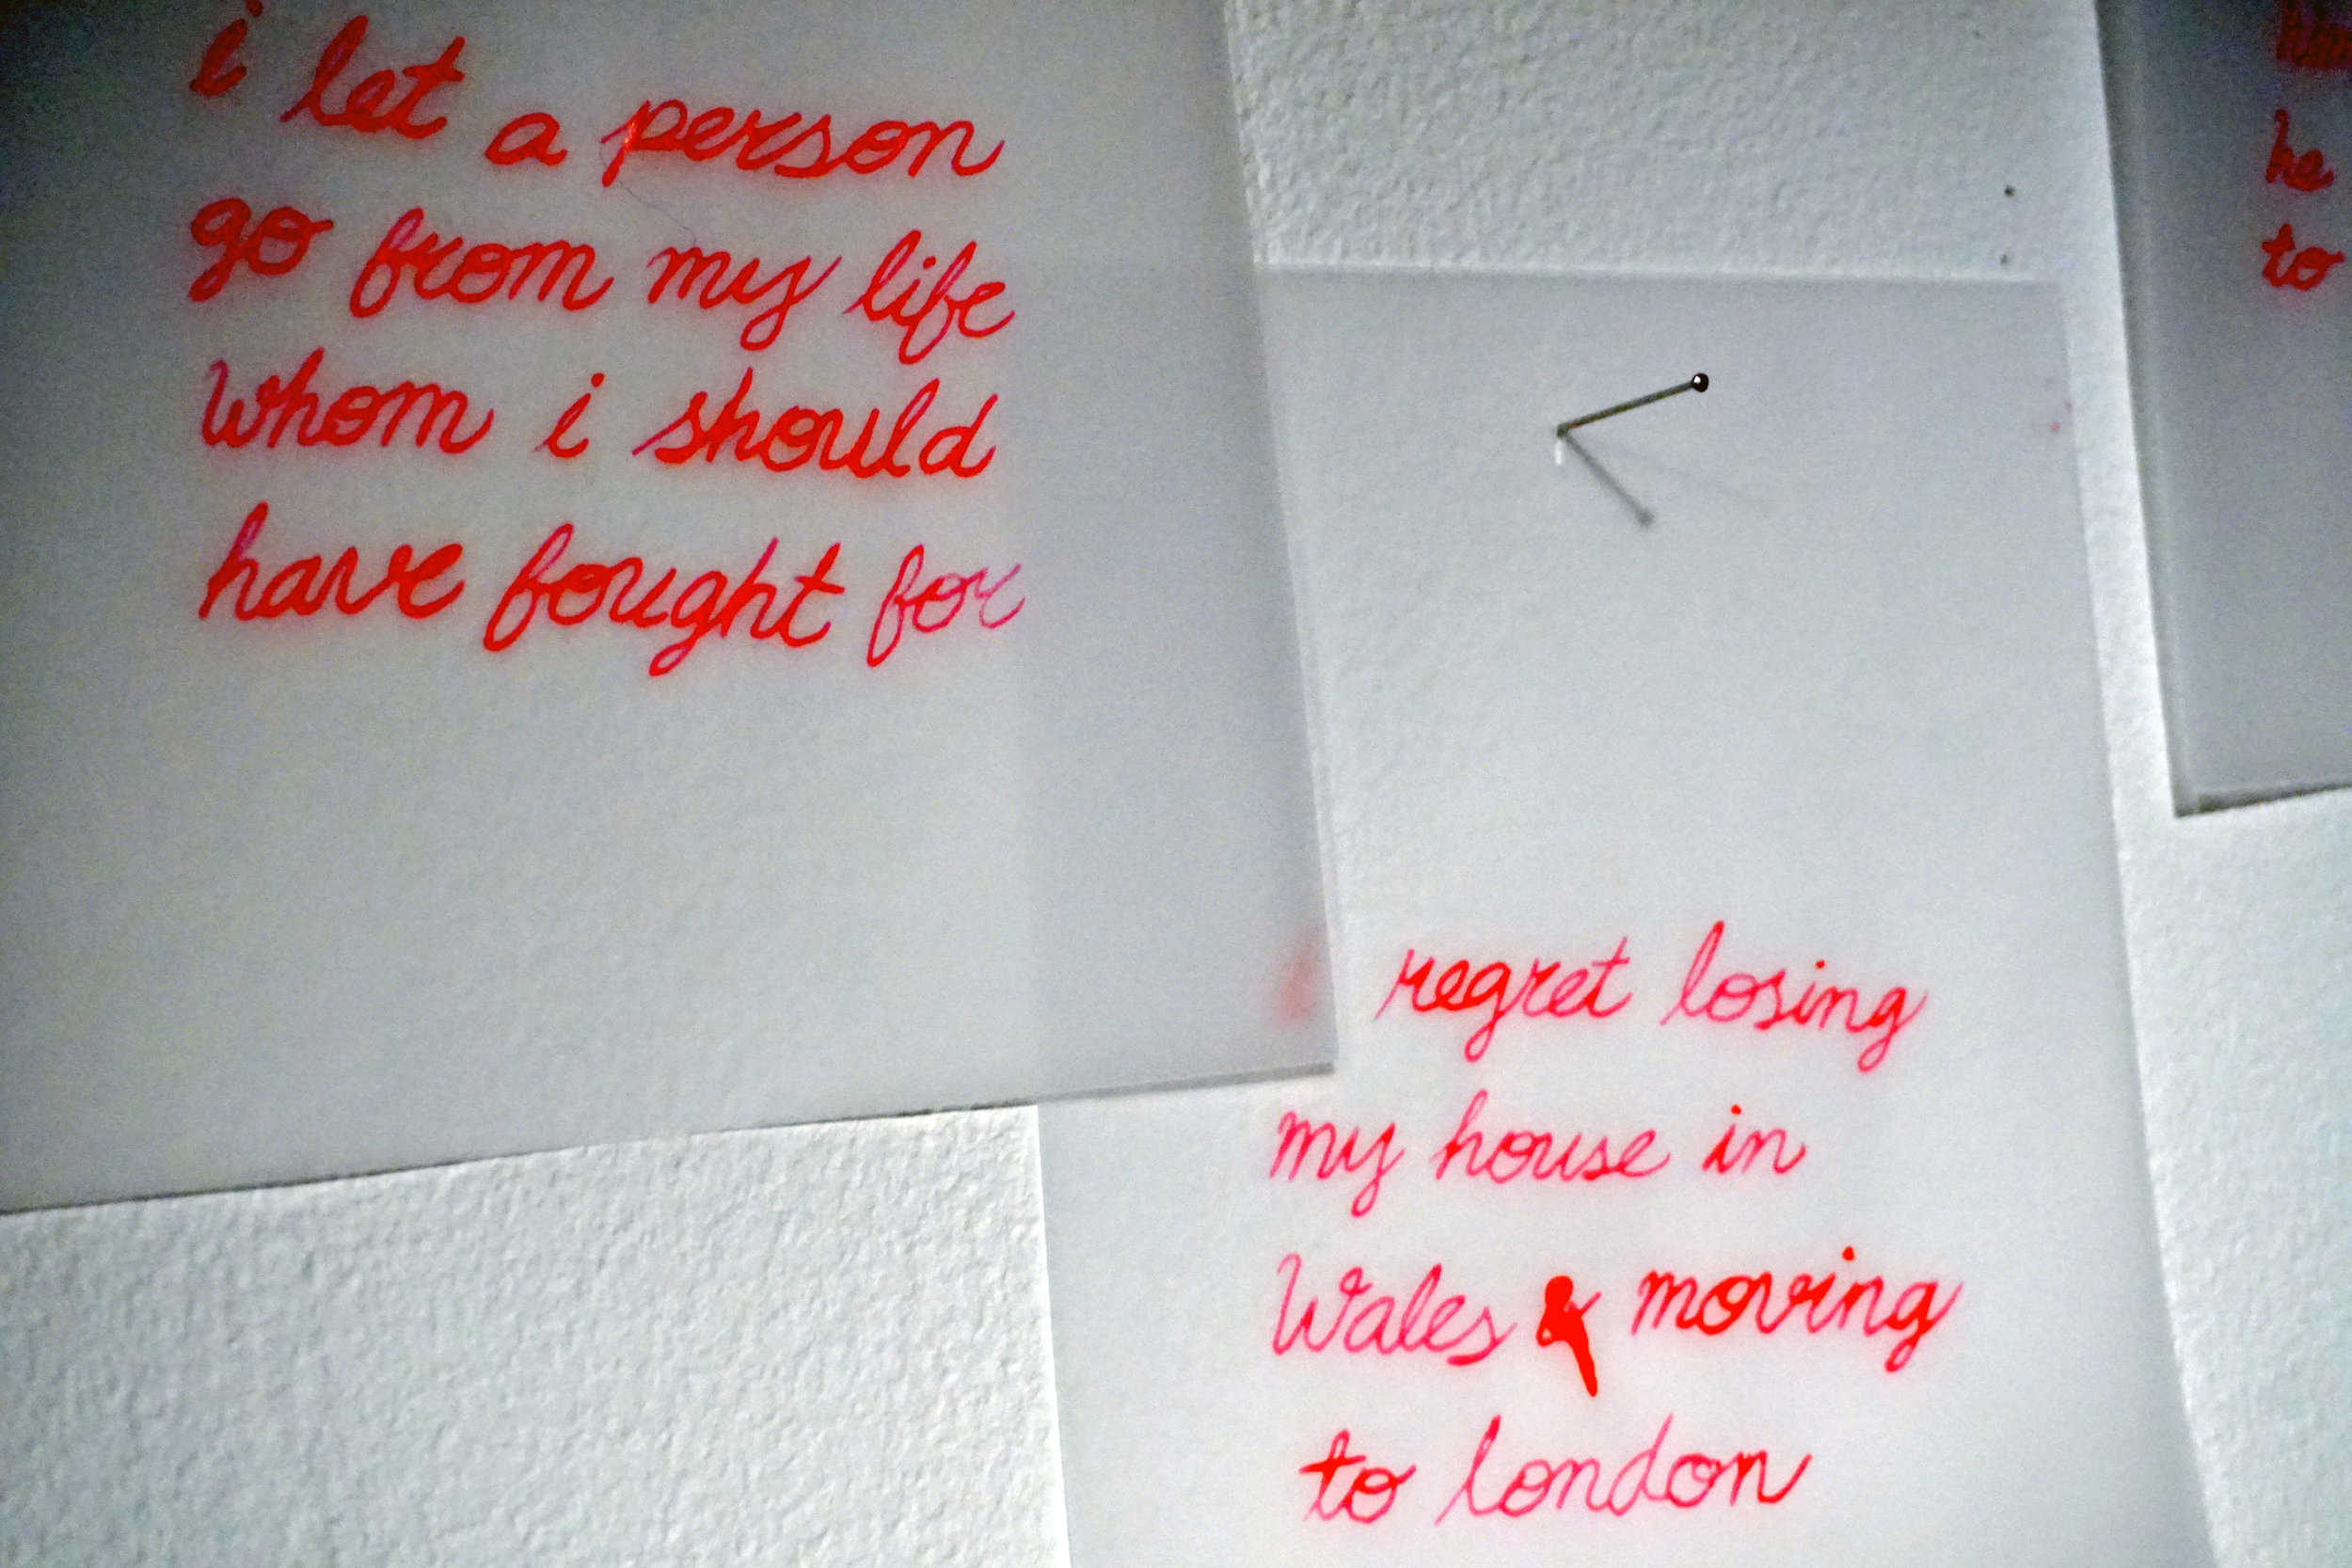 i let a person
go from my life
whom i should
have fought for
regret losing
my house in
Wales & moving
to london
he
to